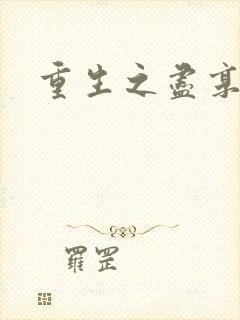 重生之盡
羅罡